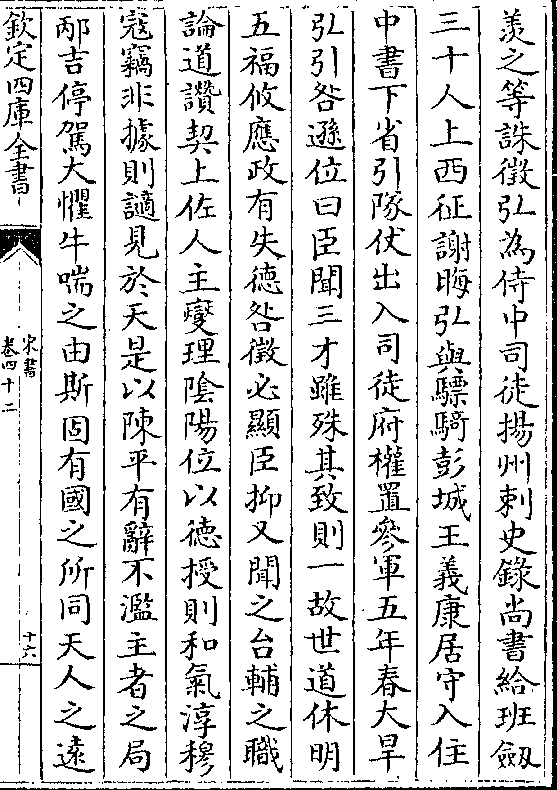 羨之等誅徵弘為侍中司徒揚州刺史錄尚書給班劔
三十人上西征謝晦弘與驃騎彭城王義康居守入住
中書下省引隊仗出入司徒府權置參軍五年春大旱
弘引咎遜位曰臣聞三才雖殊其致則一故世道休明
五福攸應政有失德咎徵必顯臣抑又聞之台輔之職
論道讚契上佐人主燮理陰陽位以德授則和氣淳穆
寇竊非據則謫見於天是以陳平有辭不濫主者之局
邴吉停駕大懼牛喘之由斯固有國之所同天人之遠
欽定四庫全書
宋書
卷四十二
十六